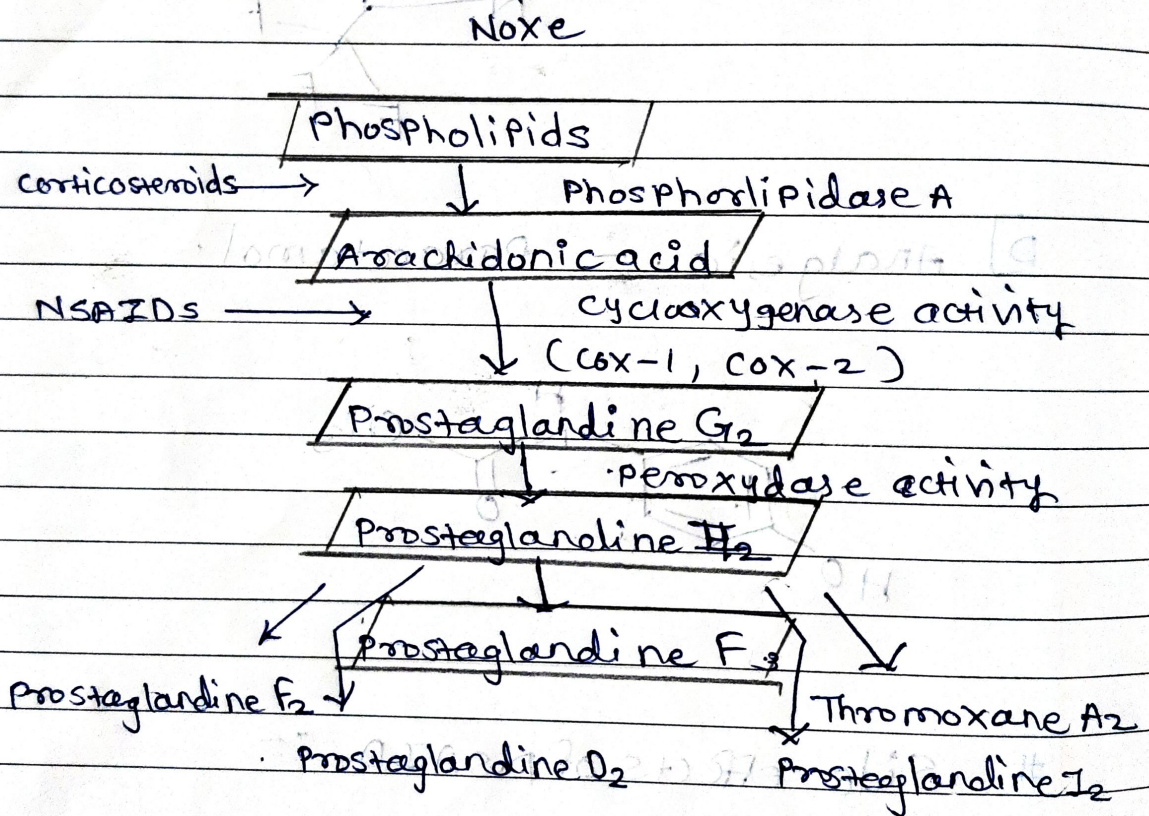 Noxe
Phospholipids
corticosteroids
Phosphorlipidase A
Arachidonic acid
NSAIDs
cyclooxygenase activity
(COX-1, COX-2)
Prostaglandine G2
peroxydase activity
Prostaglandine H2
Prostaglandine F
Prostaglandine F2
Thromoxane A2
Prostaglandine D2
Prostaglandine I2